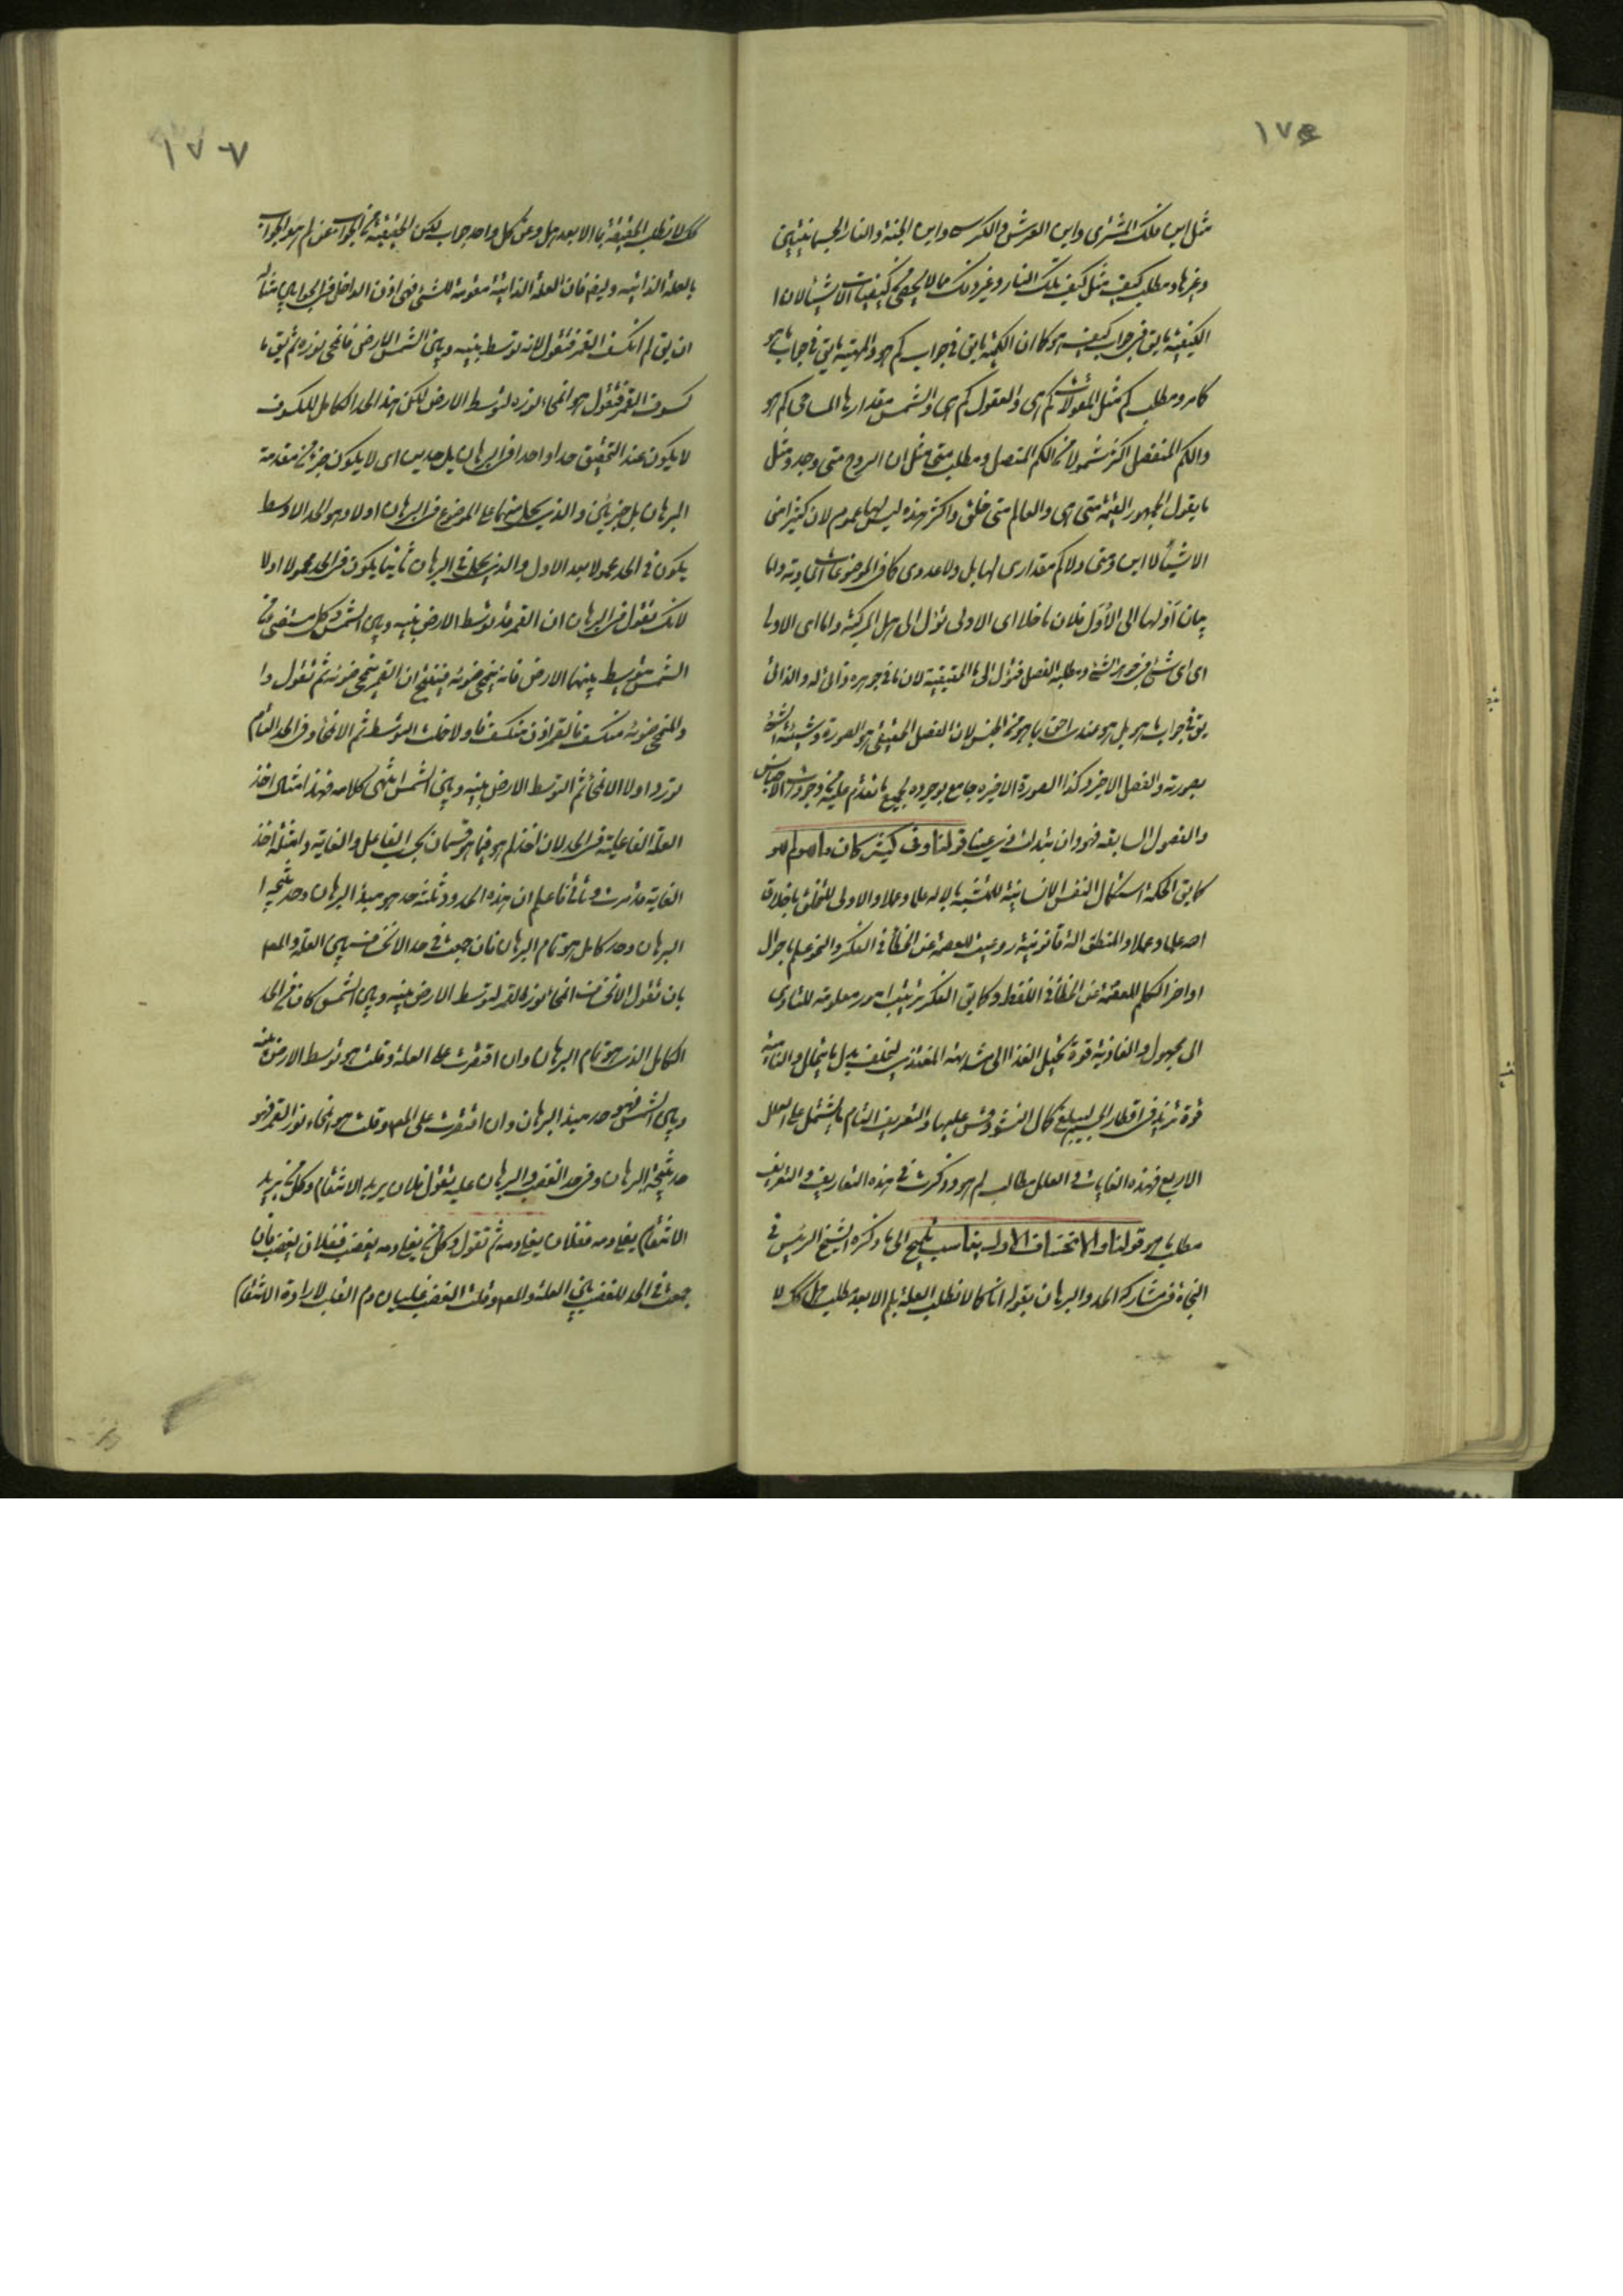 ١٧٦
مثل اين فلك المشترى واين العرش والكرسى واين الجنة والنار الجسمانيتين
وغيرها ومطلب كيف مثل كيف تلك النار وغير ذلك مما لا يحصى من كيفيات الاشياء لان
الكيفية ما يق فى جواب كيف هو كما ان الكمية ما يق فى جواب كم هو والمهية ما يق فى جواب ما هو
كما مر ومطلب كم مثل المقولات كم هى والعقول كم هى والشمس مقدارها المساحى كم هو
والكم المنفصل اكثر شمولا من الكم المتصل ومطلب متى مثل ان الروح متى وجد ومثل
ما يقول الجمهور القيمة متى هى والعالم متى خلق واكثر هذه ليس لها عموم لان كثيرا من
الاشياء لا اين ومتى ولا كم مقدارى لها بل ولا عددى كما فى الموضوعات المادية واما
بيان اولها الى الاول فلان ما خلا اى الاولى تؤل الى هل المركبة واما اى الاولى
اى اى شىء فى جوهر الشىء ومطلبه الفصل فتؤل الى ما الحقيقية لان ما فى جوهره ذاتى له والذاتى
يق فى جواب ما هو بل هو عندنا احق بما هو من الجنس لان الفصل الحقيقى هو الصورة وشيئية الشىء
بصورته والفصل الاخير وكذا الصورة الاخيرة جامع بوجوده لجميع ما تقدم عليه من وجودات الاجناس
والفصول السابقة فهو وان تبدلت ذى عينا قولنا وفى كثير كان ما هو لم هو
كما يق الحكمة استكمال النفس الانسانية للتشبه بالاله علما وعملا والاولى للتخلق باخلاق
الله علما وعملا والمنطق الة قانونية روعيت للعصمة عن الخطأ فى الفكر والنحو علم باحوال
اواخر الكلم للعصمة عن الخطأ فى اللفظ وكما يق الفكر ترتيب امور معلومة للتادى
الى مجهول والغاذية قوة تحيل الغذا الى مشابهة المغتذى ليخلف بدل ما يتحلل والنامية
قوة تزيد فى اقطار الجسم ليبلغ كمال النشو وقس عليها والتعريف التام ما يشتمل على العلل
الاربع فهذه الغايات والعلل مطالب لم هو وذكرت فى هذه التعاريف والتعريف
مطلب ما هو قولنا والانخساف الاولى يناسب تلميح الى ما ذكره الشيخ الرئيس فى
النجاة فى مشاركة الحد والبرهان بقوله انا كما لا نطلب العلة بلم الا بعد مطلب هل كك لا
١٧٧
كك لا نطلب الحقيقة بما الا بعد هل وعن كل واحد جواب لكن الحقيقية من الجواب عن لم هو الجواب
بالعلة الذاتية وليغم فان العلة الذاتية مقومة للشىء فهى اذن الداخل فى الجوابين مثاله
ان يق لم انكسف القمر فتقول لانه توسط بينه وبين الشمس الارض فانمحى نوره ثم يق ما
كسوف القمر فتقول هو انمحاء نوره لتوسط الارض لكن هذا الحد الكامل للكسوف
لا يكون عند التحقيق حدا واحدا فى البرهان بل حدين اى لا يكون جزء من مقدمة
البرهان بل جزئين والذى يحمل منهما على الموضوع فى البرهان اولا وهو الحد الاوسط
يكون فى الحد محمولا بعد الاول والذى يحمل فى البرهان ثانيا يكون فى الحد محمولا اولا
لانك تقول فى البرهان ان القمر قد توسط الارض بينه وبين الشمس وكل مستضىء من
الشمس يتوسط بينهما الارض فانه ينمحى ضوئه فينتج ان القمر ينمحى ضوئه ثم تقول وا
والمنمحى ضوئه منكسف فالقمر اذن منكسف فاولا حملت التوسط ثم الانمحاء وفى الحد التام
تورد اولا الانمحاء ثم التوسط الارض بينه وبين الشمس انتهى كلامه فهذا مثال اخذ
العلة الفاعلية فى الحد لان اخذ لم هو فيما هو قسمان بحسب الفاعل والغاية وامثلة اخذ
الغاية قد مرت وتأتى فاعلم ان هذه الحدود ثلثة حد هو مبدأ البرهان وحد نتيجة
البرهان وحد كامل هو تمام البرهان فان جمعت فى حد الانخساف بين العلة والمع
بان تقول الانخساف انمحاء نور القمر لتوسط الارض بينه وبين الشمس كان من الحد
الكامل الذى هو تمام البرهان وان اقتصرت على العلة وقلت هو توسط الارض بينه
وبين الشمس فهو حد مبدأ البرهان وان اقتصرت على المع وقلت هو انمحاء نور القمر فهو
حد نتيجة البرهان وفى حد الغضب والبرهان عليه تقول فلان يريد الانتقام وكل من يريد
الانتقام يغلى دمه ففلان يغلى دمه ثم تقول وكل من يغلى دمه يغضب ففلان يغضب فان
جمعت فى الحد للغضب بين العلة والمع وقلت الغضب غليان دم القلب لارادة الانتقام